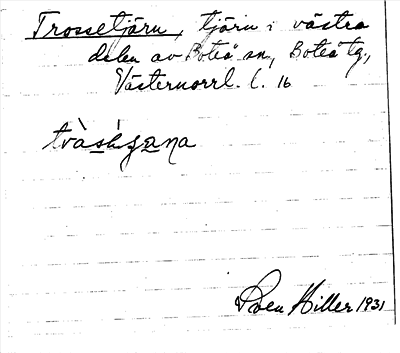 Trossetjärn, tjärn i västra
delen av Boteå sn, Boteå tg.,
Västernorrl. l. 16
Sven Hiller 1931